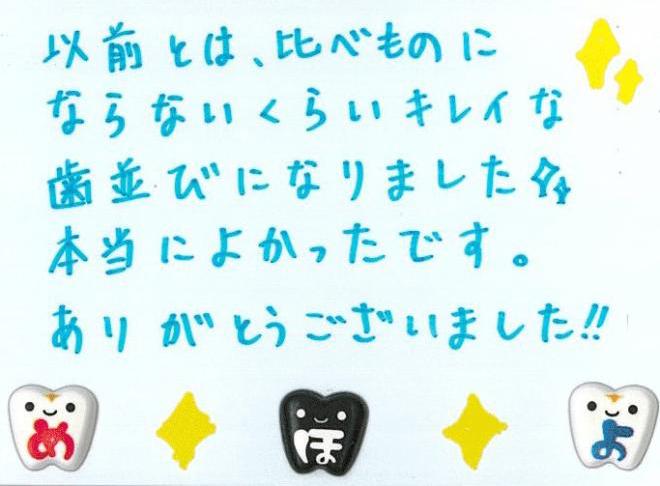 以前とは、比べものに
ならないくらいキレイな
歯並びになりました✨
本当によかったです。
ありがとうございました!!
め ほ よ